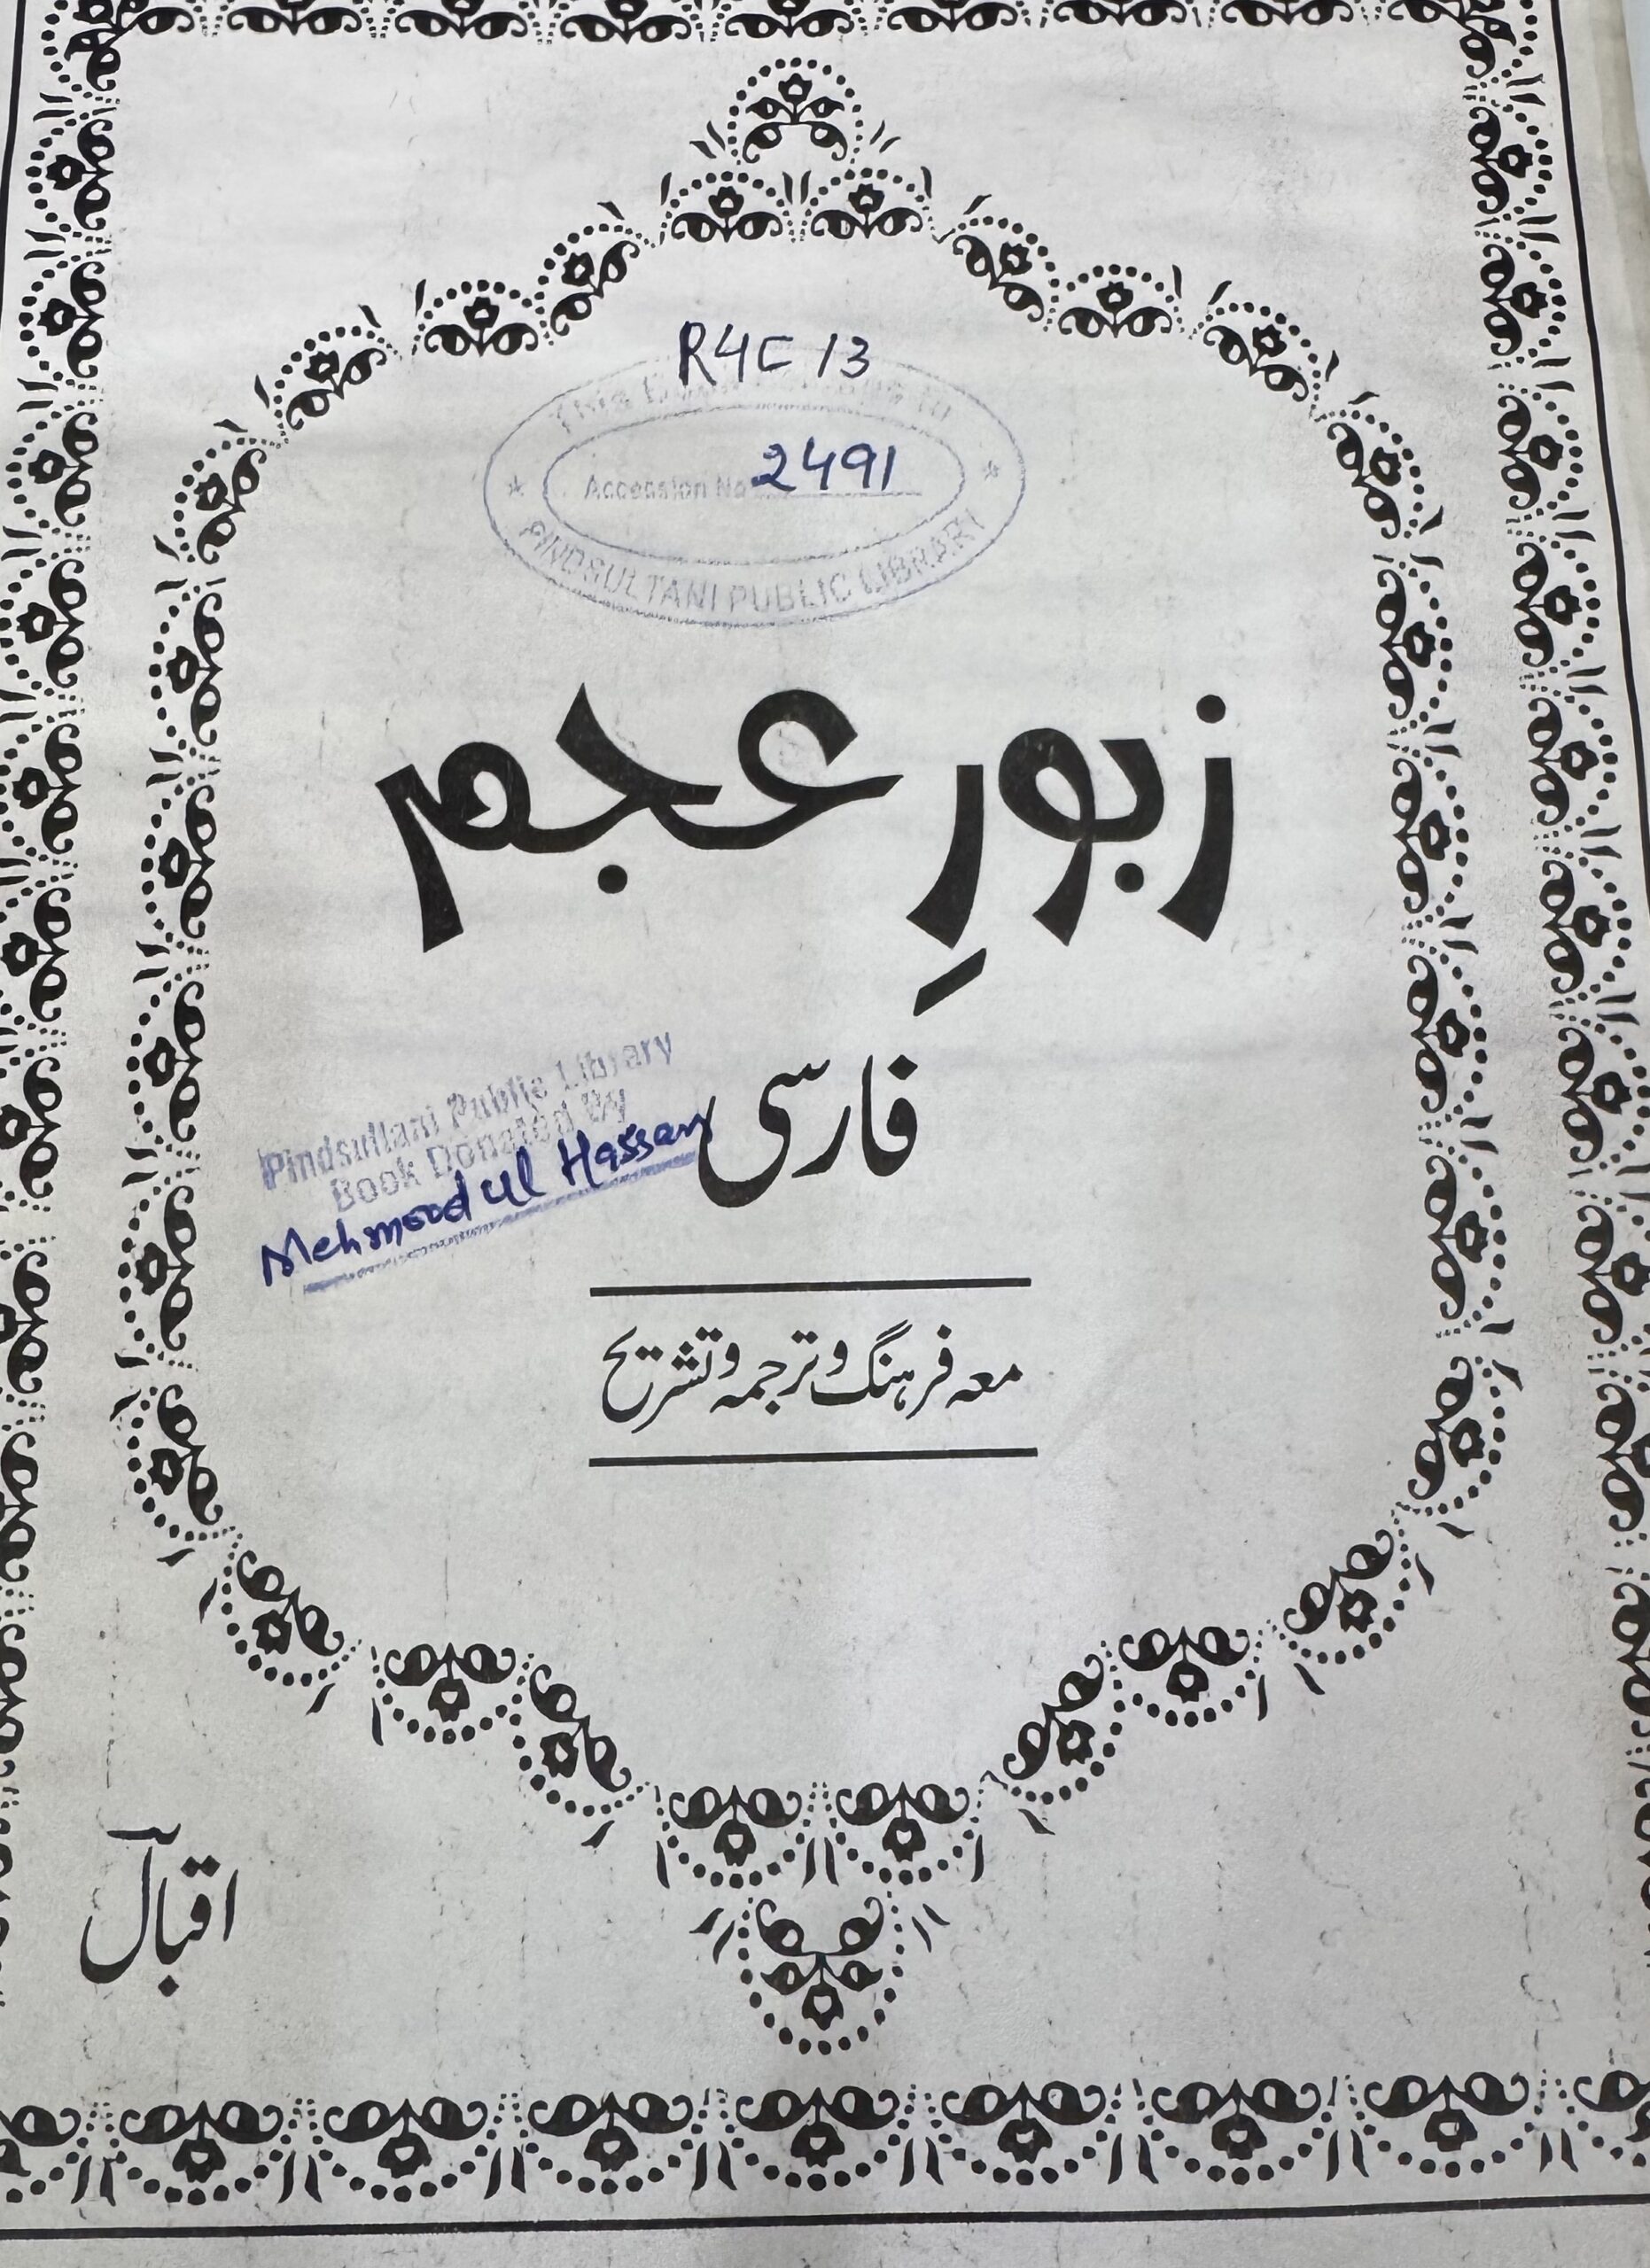 R4C 13
This Book Belongs to
Accession No 2491
PINDSULTANI PUBLIC LIBRARY
زبورِ عجم
فارسی
Pindsultani Public Library
Book Donated By
Mehmood ul Hassan
معہ فرہنگ و ترجمہ و تشریح
اقبالؔ